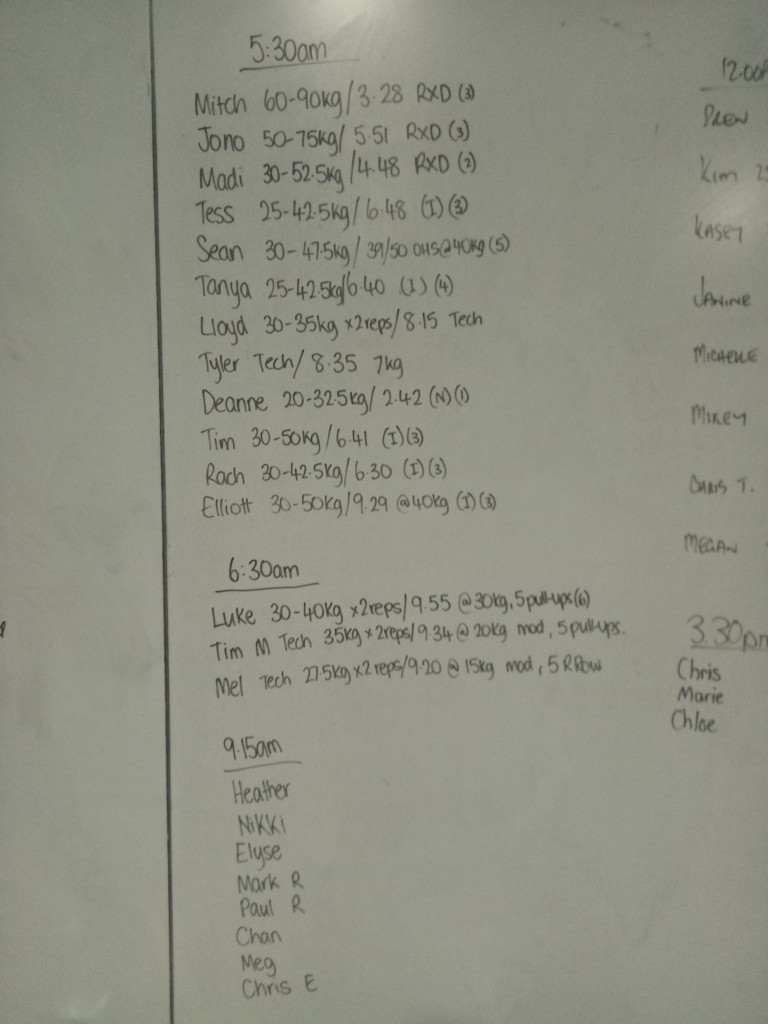 5:30am
Mitch 60-90kg/3.28 RXD (3)
Jono 50-75kg/ 5.51 RXD (3)
Madi 30-52.5kg/4.48 RXD (2)
Tess 25-42.5kg/6.48 (I)(3)
Sean 30-47.5kg/ 39/50 OHS@40kg (5)
Tanya 25-42.5kg/6.40 (I) (4)
Lloyd 30-35kg x2reps/8.15 Tech
Tyler Tech/8.35 7kg
Deanne 20-32.5kg/ 2.42 (N)(1)
Tim 30-50kg/6.41 (I)(3)
Rach 30-42.5kg/6.30 (I)(3)
Elliott 30-50kg/9.29 @40kg (I)(3)
6:30am
Luke 30-40kg x2reps/9.55 @30kg, 5pull-ups(6)
Tim M Tech 35kg x2reps/9.34 @ 20kg mod, 5pull-ups.
Mel Tech 27.5kg x2reps/9.20 @ 15kg mod, 5 R Row
9.15am
Heather
NiKKi
Elyse
Mark R
Paul R
Chan
Meg
Chris E
12.00
DREW
Kim
KASEY
JANINE
MICHELLE
MIKEY
CHRIS T.
MEGAN
3.30pm
Chris
Marie
Chloe